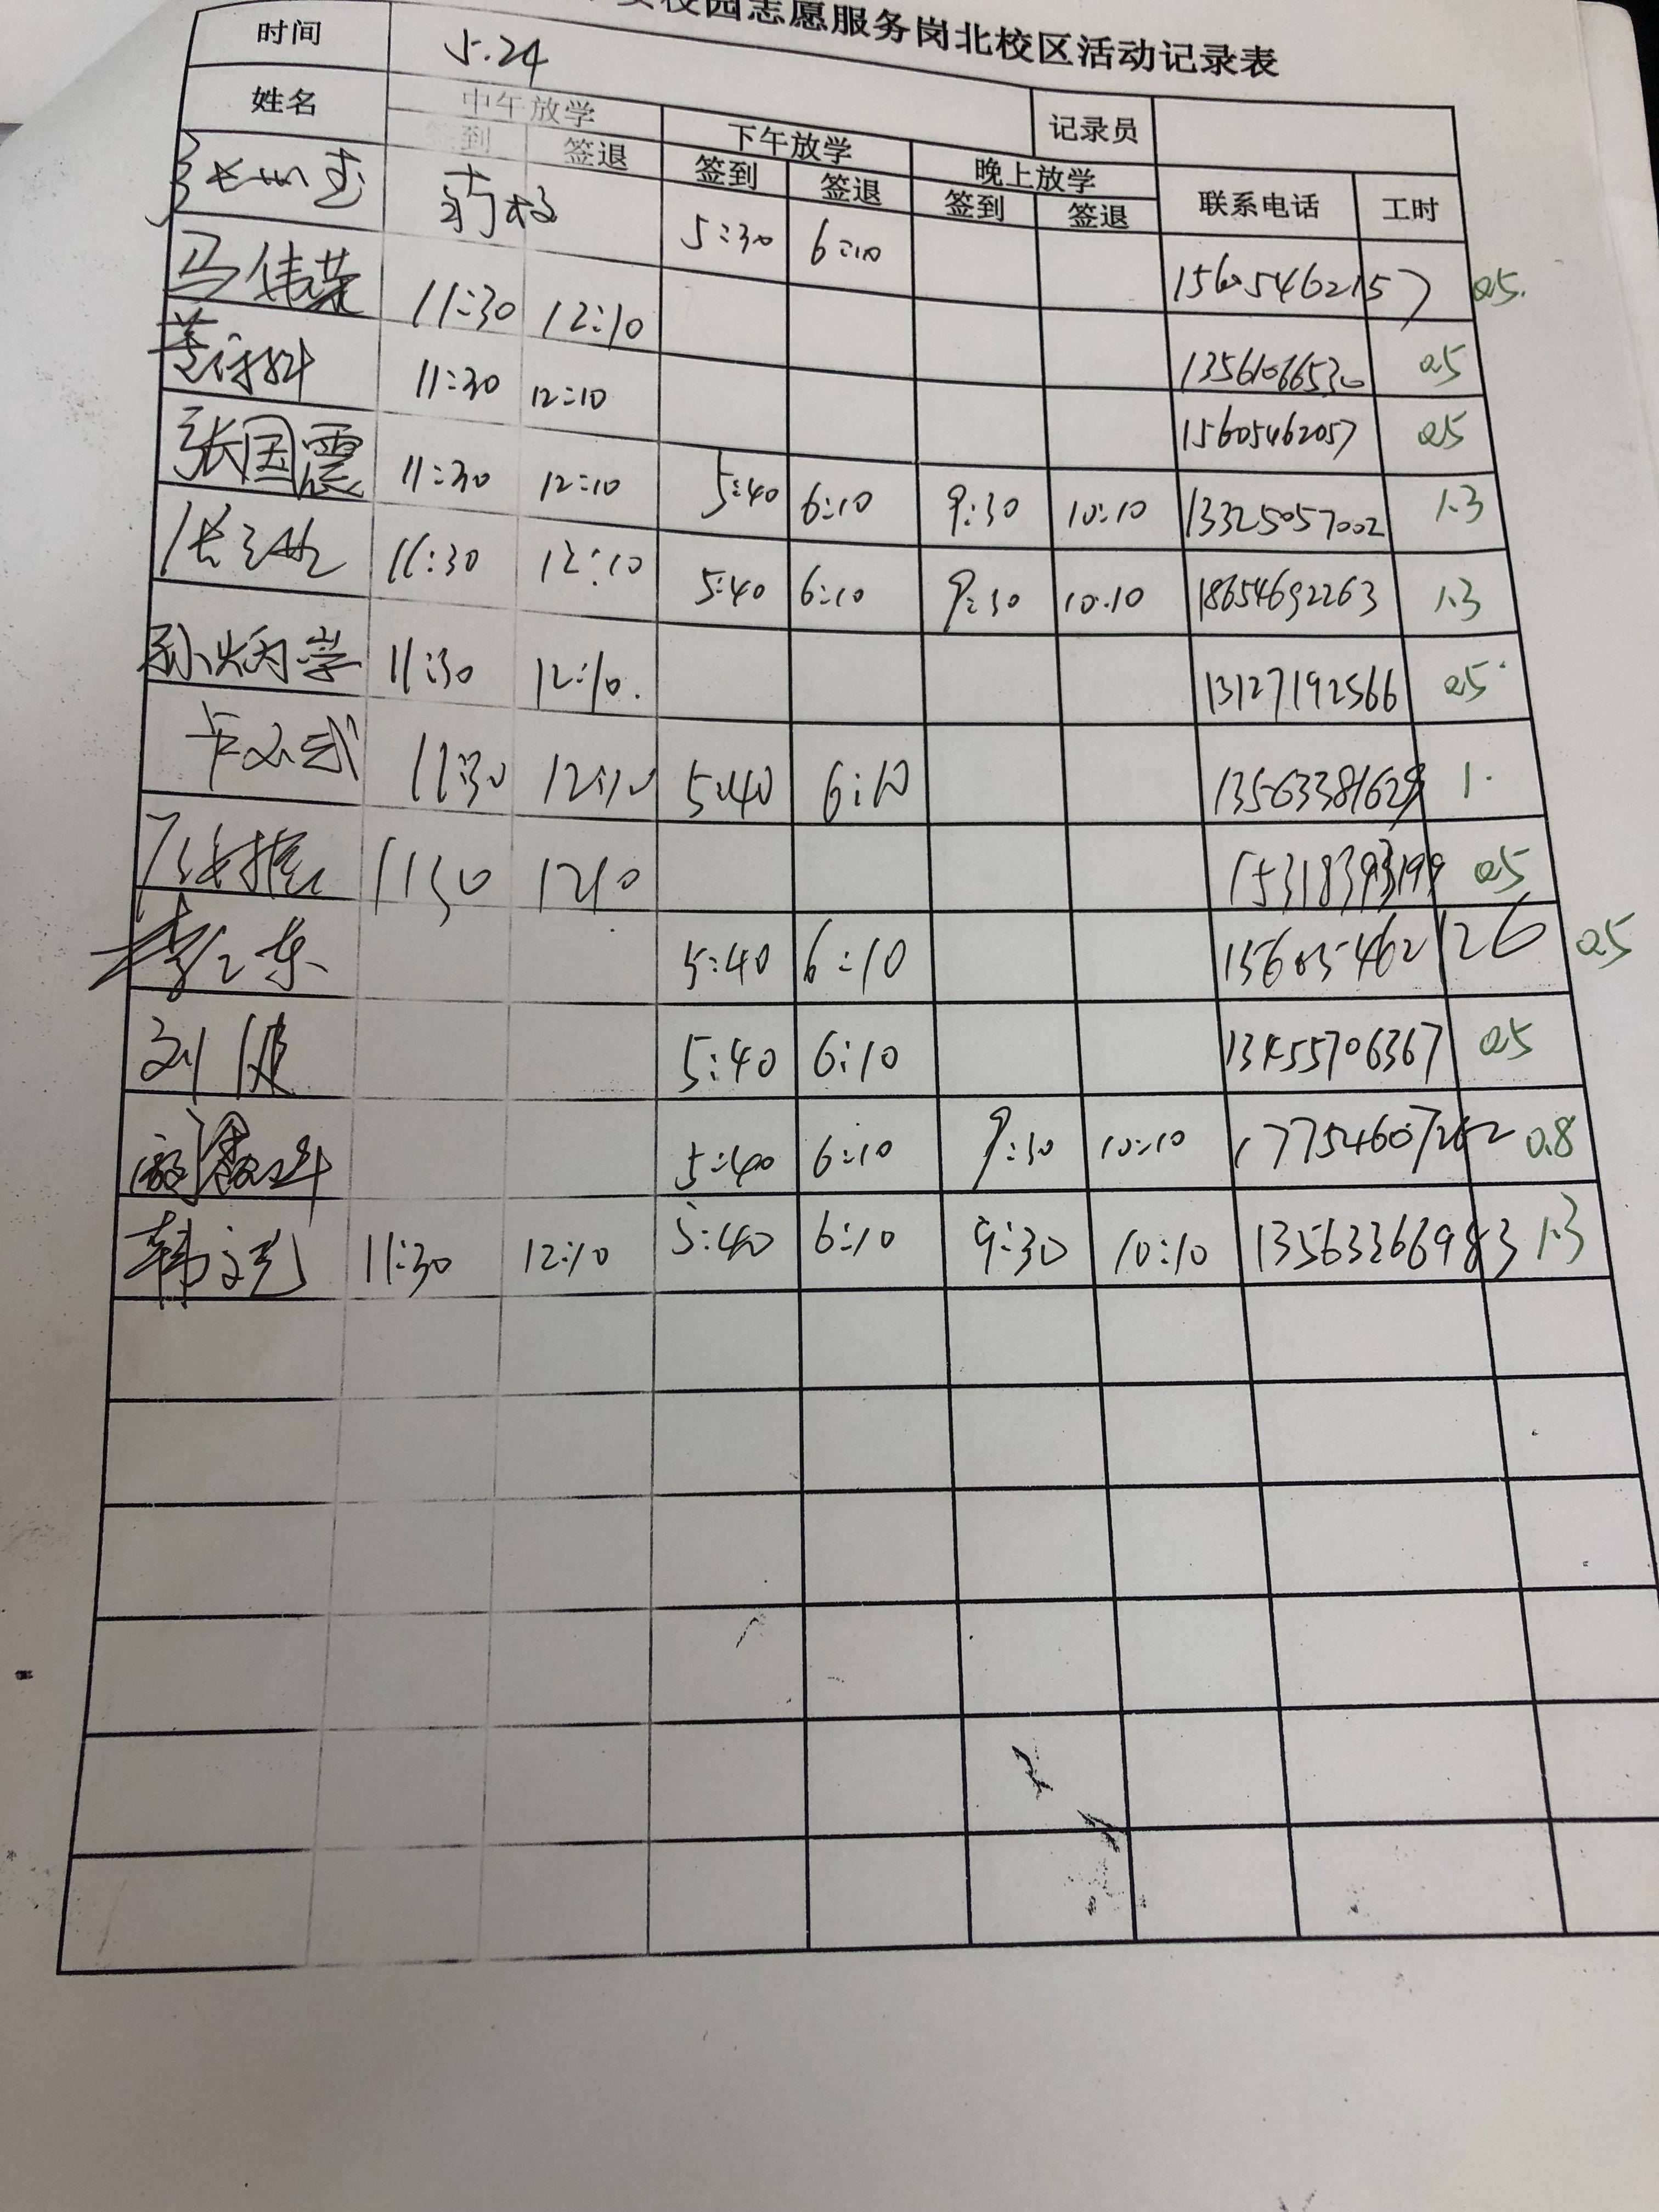 校园志愿服务岗北校区活动记录表
时间 5.24 记录员
姓名 中午放学 下午放学 晚上放学 联系电话 工时
签到 签退 签到 签退 签到 签退
5:30 6:10 15605462157 0.5
马伟荣 11:30 12:10 13561066530 0.5
11:30 12:10 15605462057 0.5
张国震 11:30 12:10 5:40 6:10 9:30 10:10 13325057002 1.3
11:30 12:10 5:40 6:10 9:30 10:10 18654692263 1.3
孙炳学 11:30 12:10. 13127192566 0.5
11:30 12:10 5:40 6:10 13563381629 1.
1130 1210 15318393199 0.5
5:40 6:10 15605462126 0.5
刘波 5:40 6:10 13455706367 0.5
5:40 6:10 9:30 10:10 17754607262 0.8
韩文光 11:30 12:10 5:40 6:10 9:30 10:10 13563366983 1.3